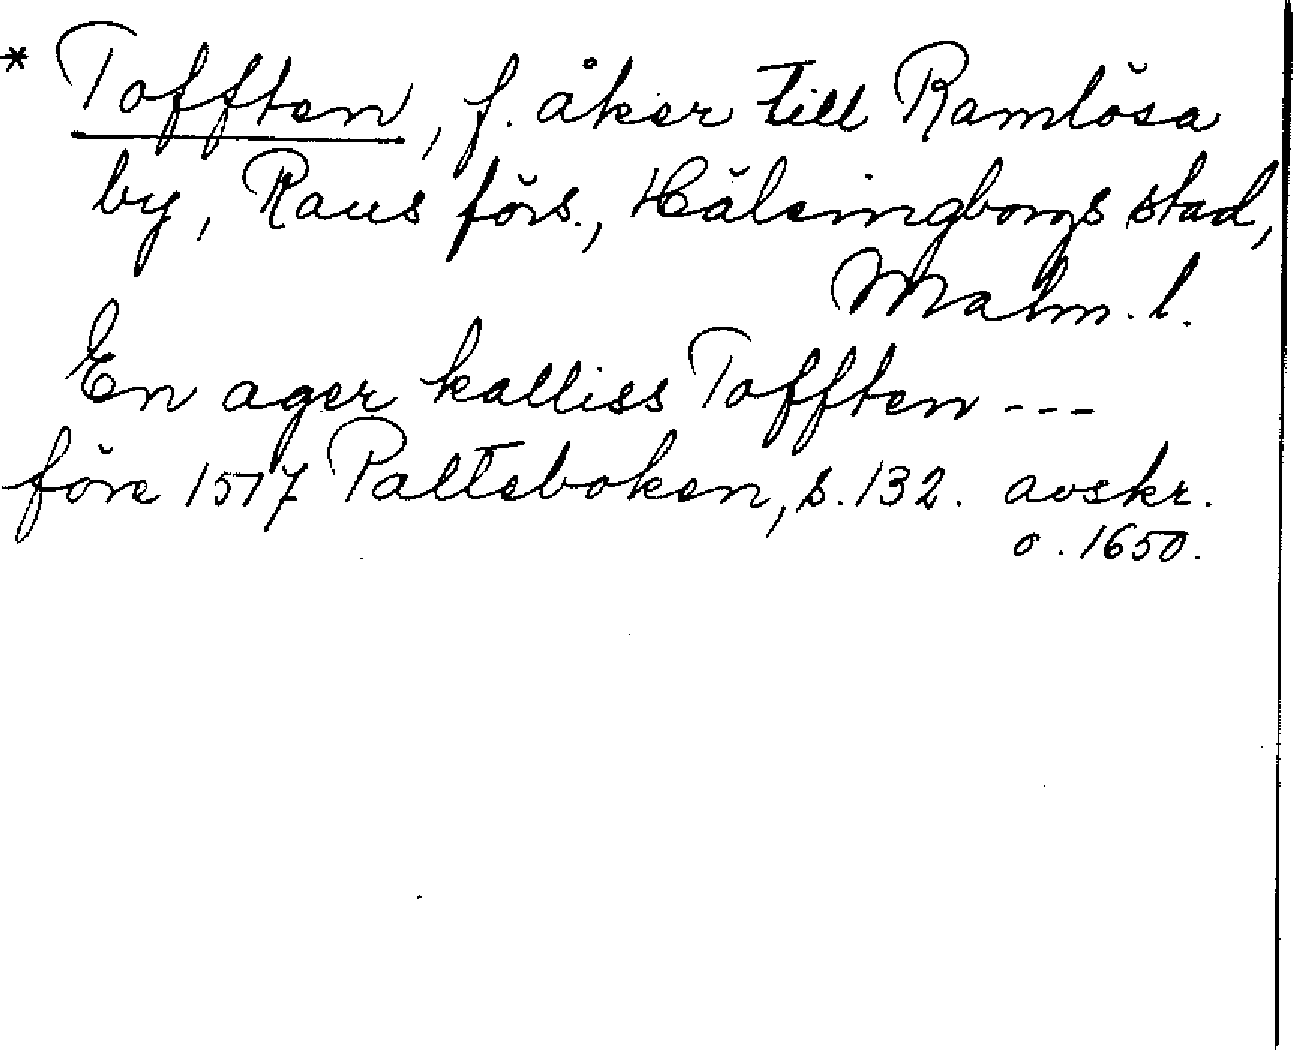 * Tofften, f. åker till Ramlösa
by, Raus förs., Hälsingborgs stad,
Malm. l.
En ager kalliss Tofften ---
före 1517 Palteboken, s. 132. avskr.
o. 1650.